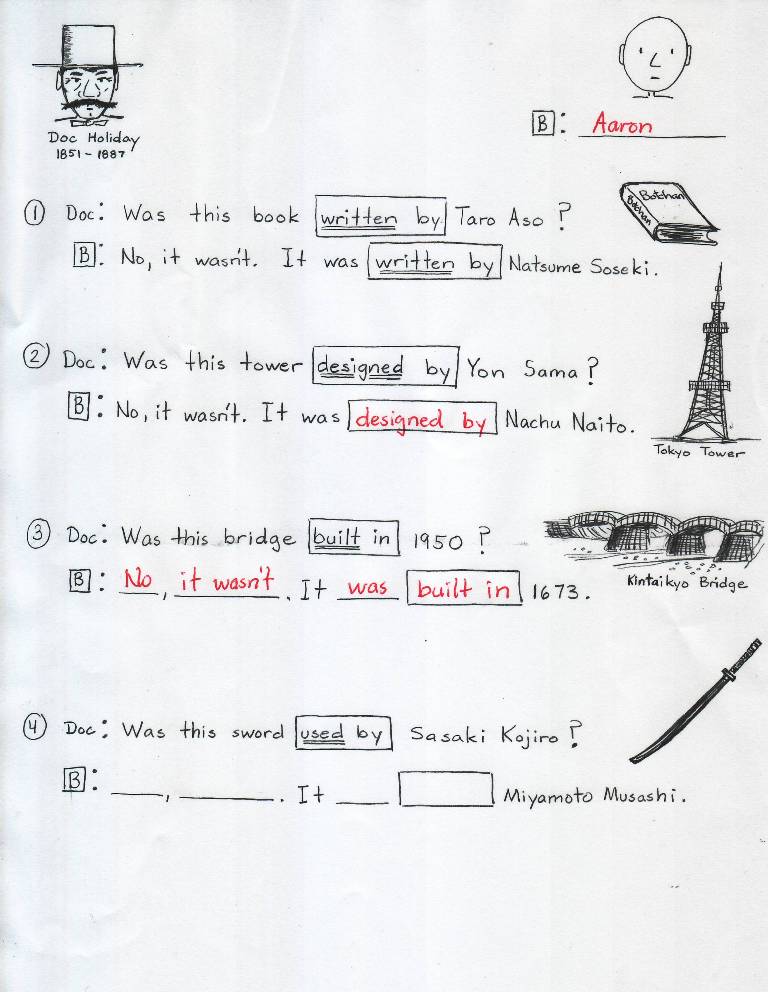 Doc Holiday
1851 - 1887
B: Aaron
① Doc: Was this book written by Taro Aso?
Botchan
Botchan
B: No, it wasn't. It was written by Natsume Soseki.
② Doc: Was this tower designed by Yon Sama?
B: No, it wasn't. It was designed by Nachu Naito.
Tokyo Tower
③ Doc: Was this bridge built in 1950?
B: No, it wasn't. It was built in 1673.
Kintaikyo Bridge
④ Doc: Was this sword used by Sasaki Kojiro?
B: ____, ________. It ____ ____ Miyamoto Musashi.